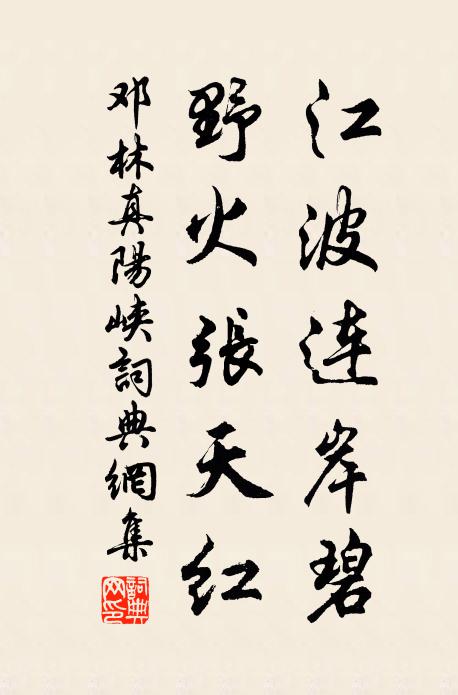 江波连岸碧
野火張天红
邓林真陽峡詞典網集
詞典网印